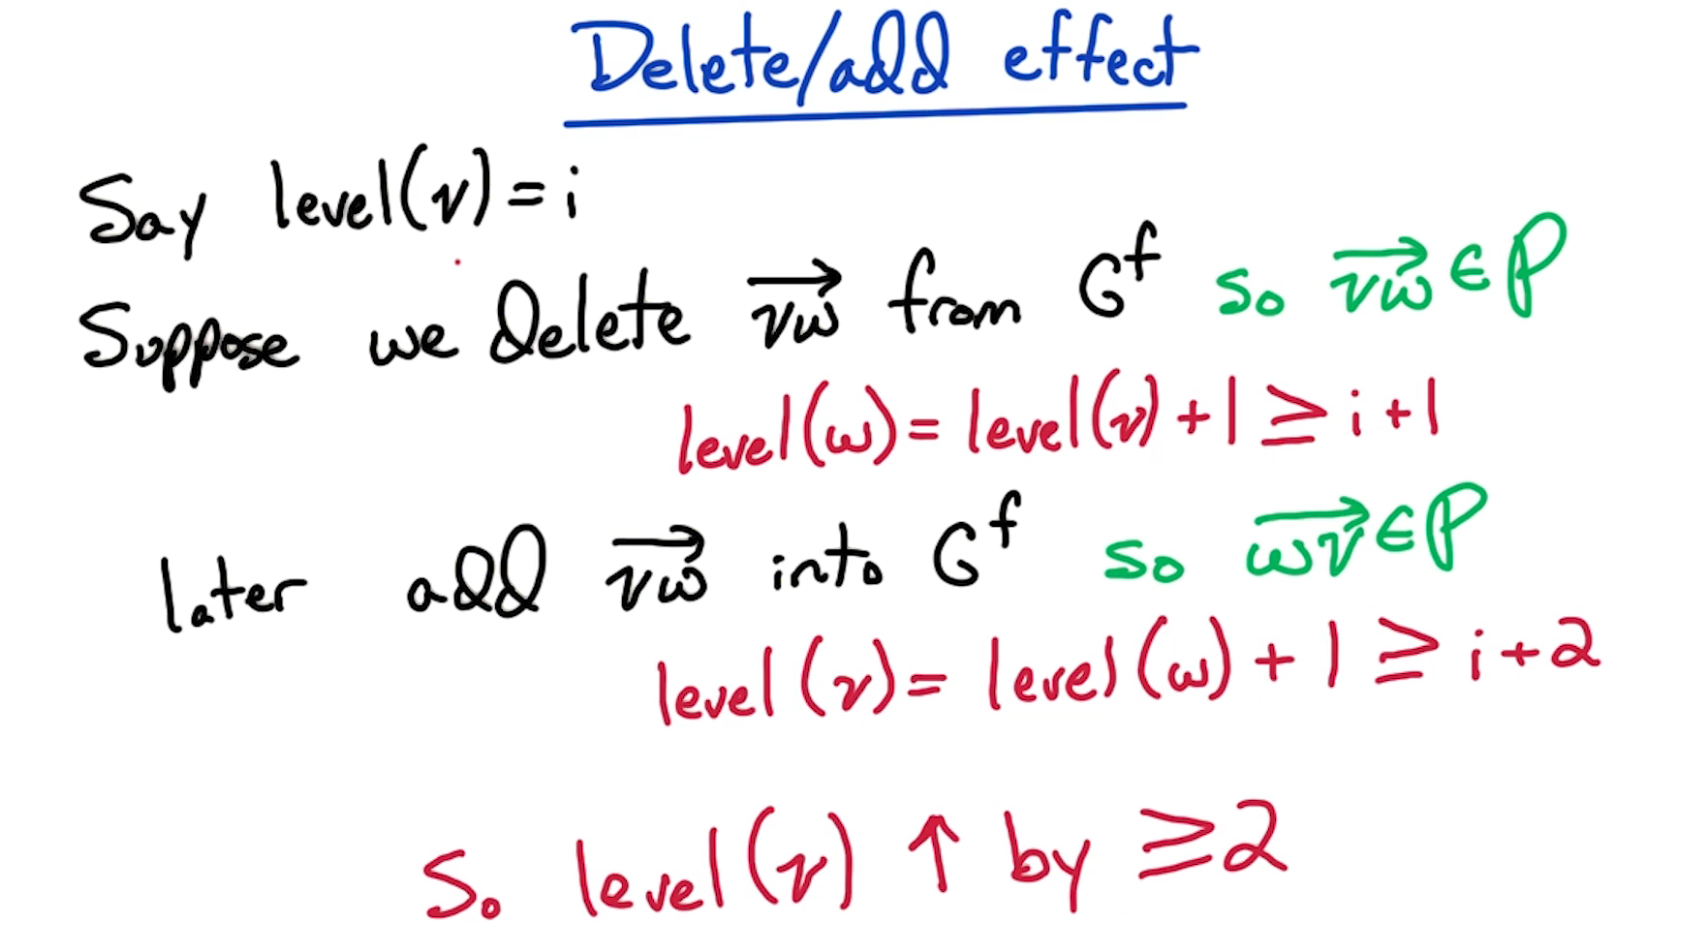 Delete/add effect
Say level(v) = i
Suppose we delete \overrightarrow{vw} from G^f so \overrightarrow{vw} ∈ P
level(w) = level(v) + 1 ≥ i + 1
later add \overrightarrow{vw} into G^f so \overrightarrow{wv} ∈ P
level(v) = level(w) + 1 ≥ i + 2
So level(v) ↑ by ≥ 2